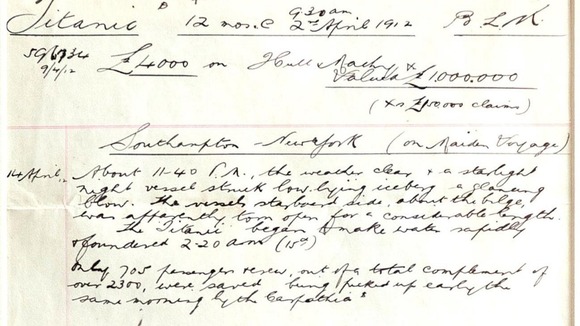 Titanic 12 mos. 2nd April 1912 B L K.
9/4/12 £4000 on Hull & Machy &
Valued £1000.000
(xs £150000 claims)
Southampton - New York (on Maiden Voyage)
14 April. About 11-40 P.M., the weather clear & a starlight
night vessel struck low lying iceberg a glancing
blow. The vessels starboard side, about the bilge,
was apparently torn open for a considerable length.
The "Titanic" began to make water rapidly
& foundered 2-20 am (15th)
Only 705 passengers & crew, out of a total complement of
over 2300, were saved being picked up early the
same morning by the "Carpathia"